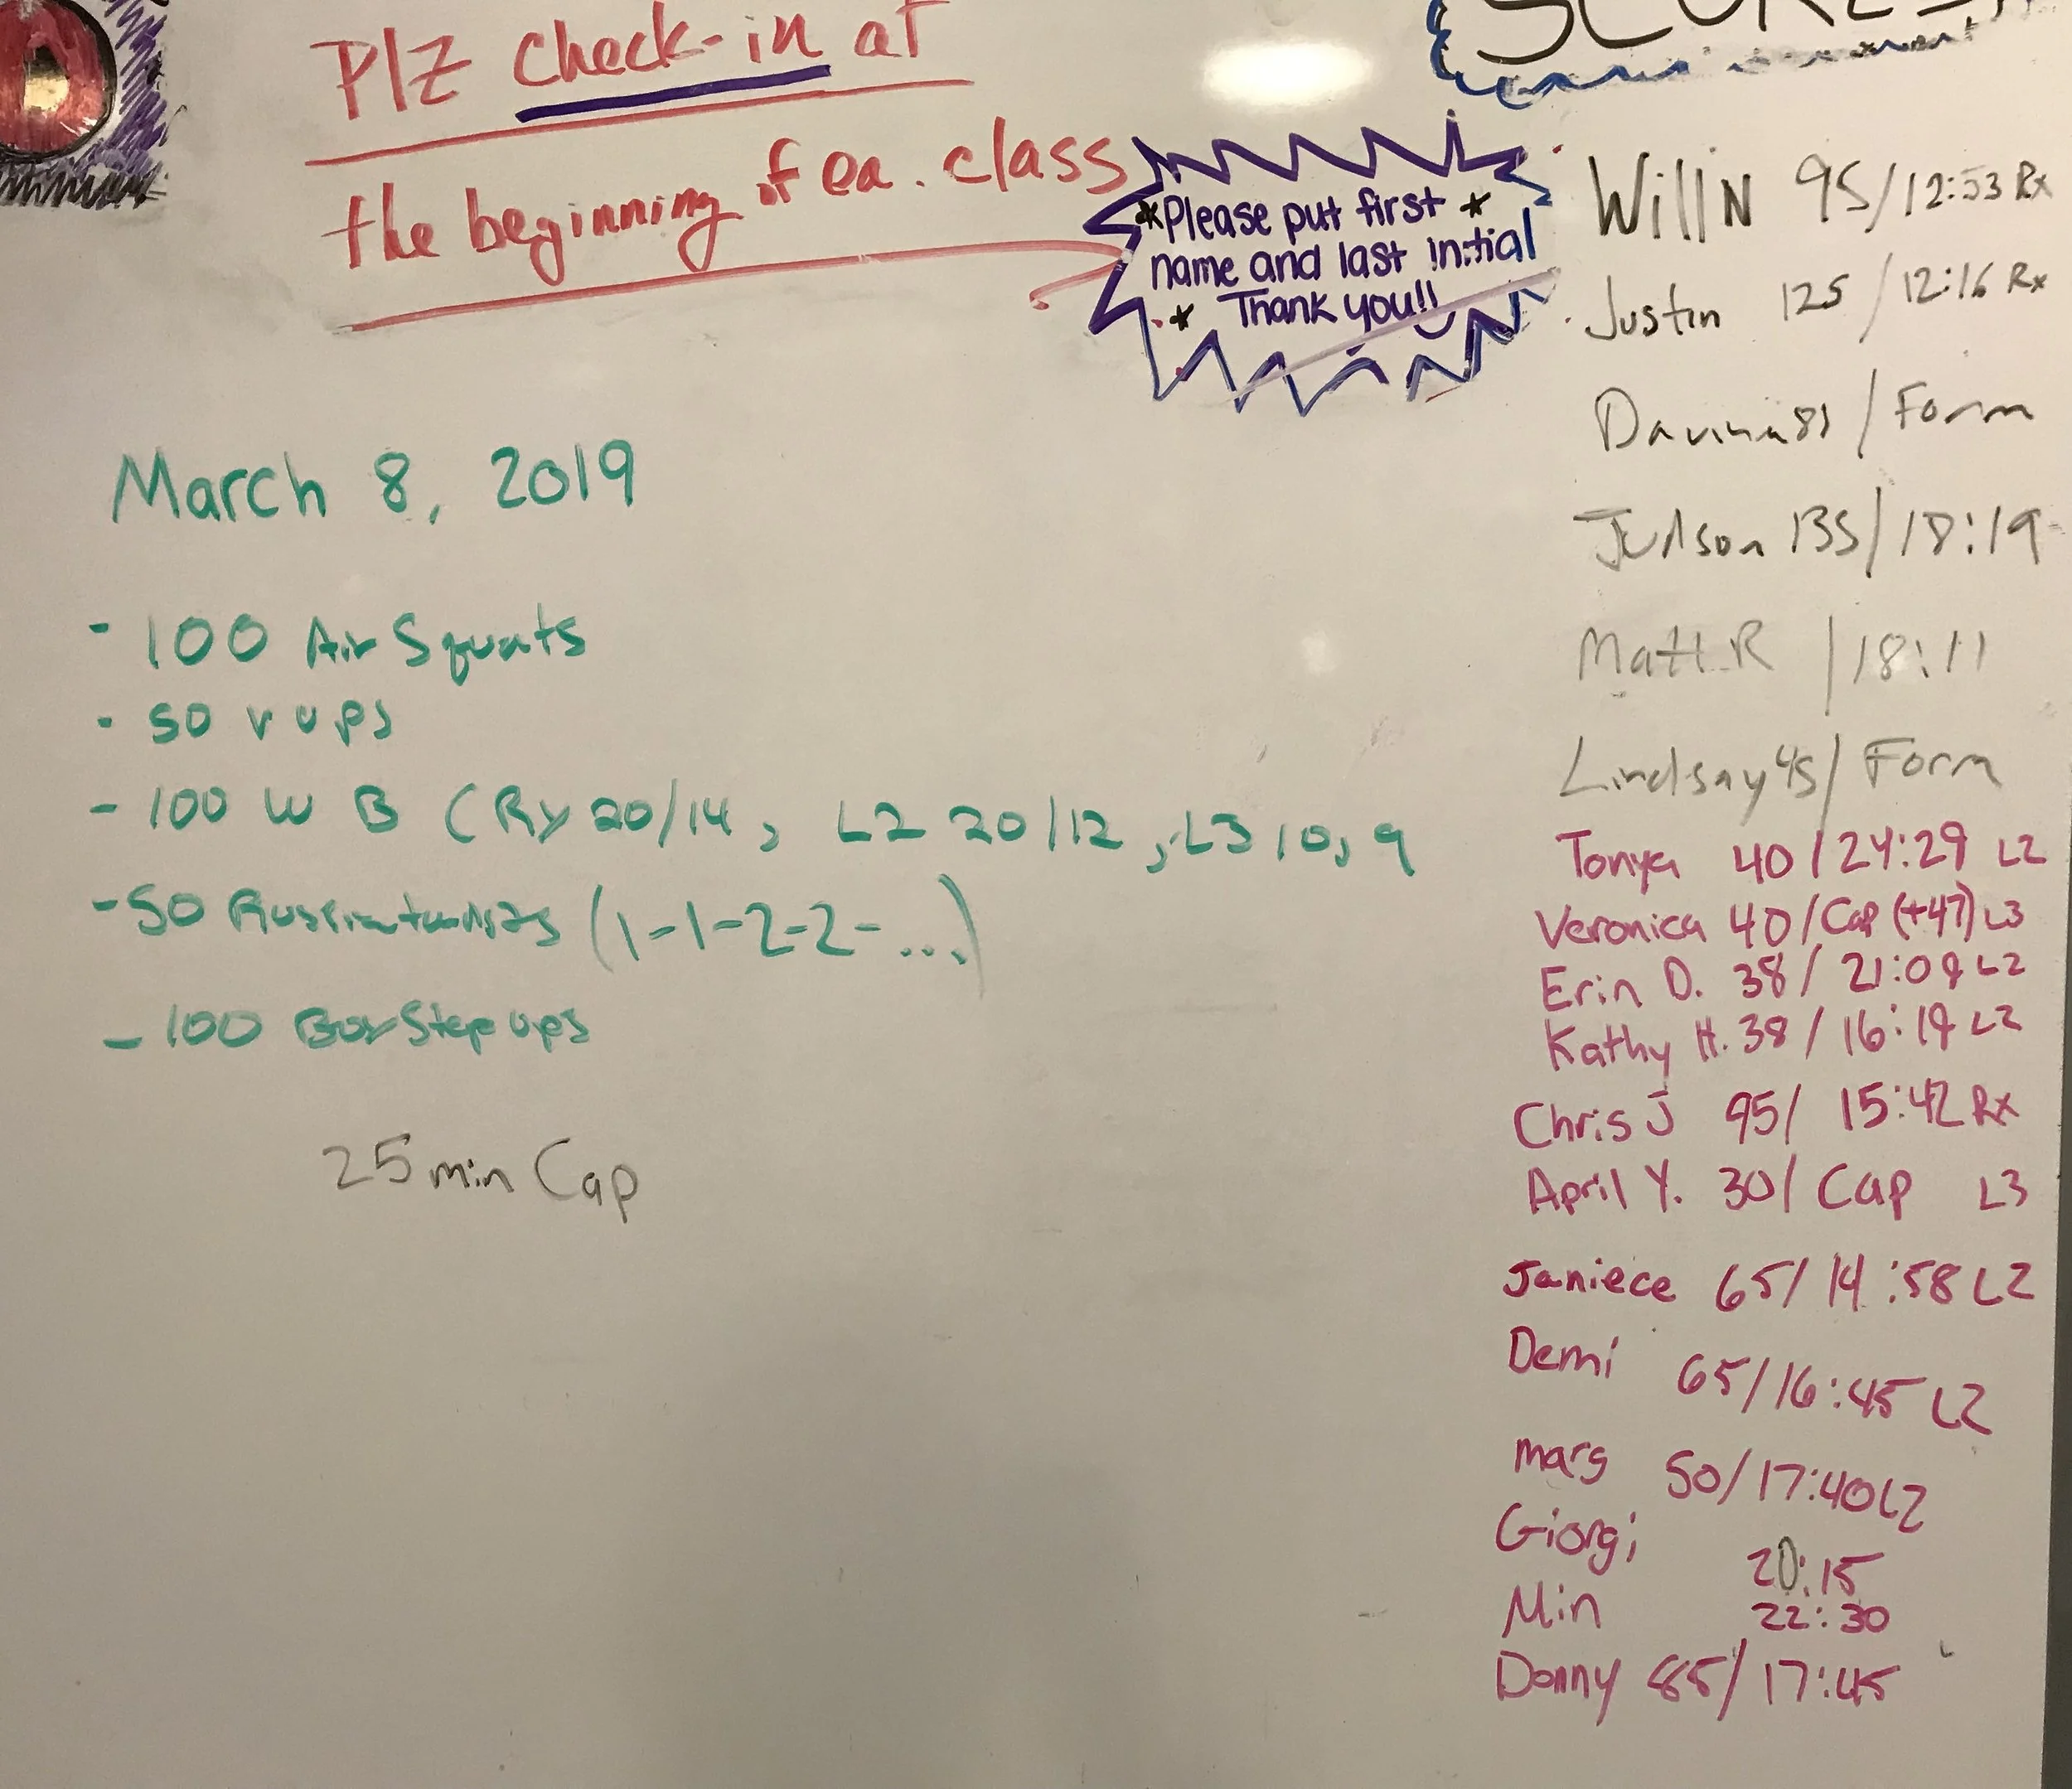 Plz check-in at
the beginning of ea. class
*Please put first *
name and last initial
* Thank you!!
March 8, 2019
- 100 Air Squats
- 50 v ups
- 100 W B (Rx 20/14, L2 20/12, L3 10, 9
- 50 (1-1-2-2-...)
- 100 Box Step ups
25 min Cap
Will N 95/12:53 Rx
Justin 125 / 12:16 Rx
/ Form
Judson 135/18:19
Matt R /18:11
Lindsay 45/ Form
Tonya 40/24:29 L2
Veronica 40/Cap (+47) L3
Erin D. 38/ 21:09 L2
Kathy H. 38/ 16:19 L2
Chris J 95/ 15:42 Rx
April Y. 30/ Cap L3
Janiece 65/ 14:58 L2
Demi 65/16:45 L2
Marg 50/17:40 L2
Giorgi 20:15
Min 22:30
Donny 85/17:45